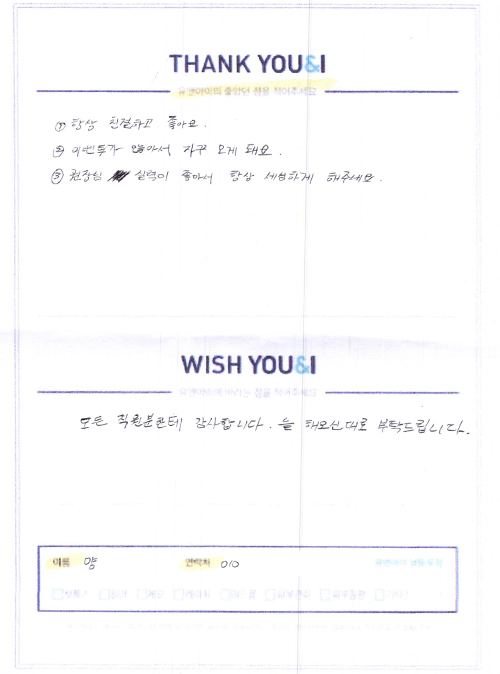 THANK YOU&I
유앤아이의 좋았던 점을 적어주세요
① 항상 친절하고 좋아요.
② 이벤트가 많아서 자꾸 오게 돼요.
③ 원장님 실력이 좋아서 항상 세심하게 해주세요.
WISH YOU&I
유앤아이에 바라는 점을 적어주세요
모든 직원분한테 감사합니다. 늘 해오신대로 부탁드립니다.
이름 양 연락처 010